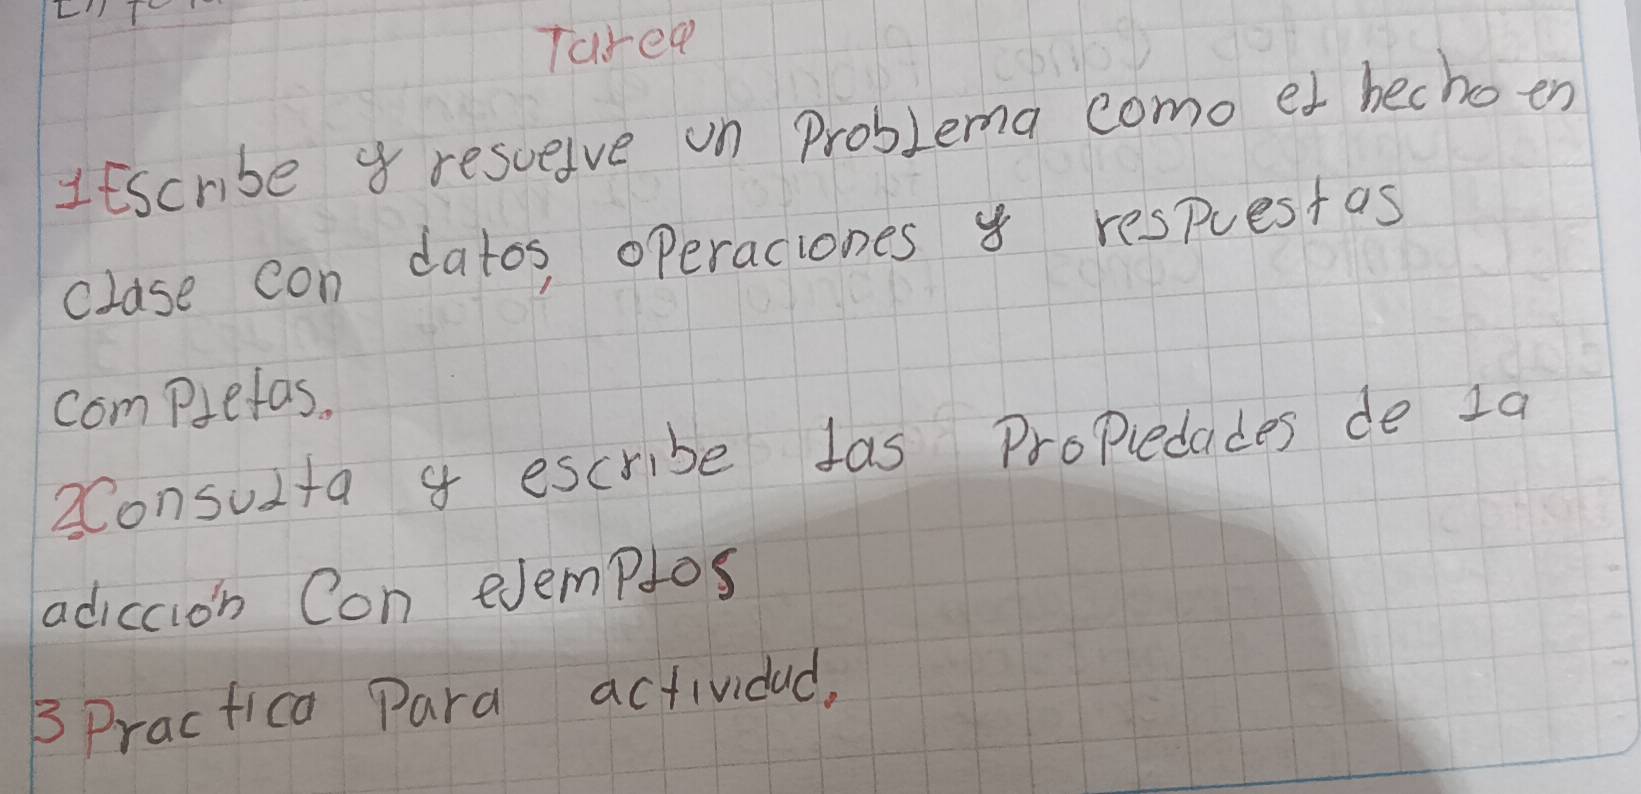 Tarea
1 Escribe y resuelve un problema como el hecho en
clase con datos, operaciones y respuestas
completas.
2 Consulta y escribe las propiedades de la
adicción Con ejemplos
3 Practica para actividad.